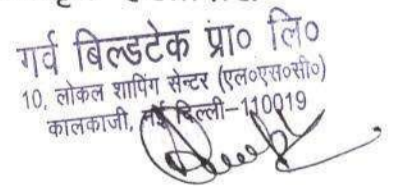 गर्व बिल्डटेक प्रा० लि०
10, लोकल शापिंग सेन्टर (एल०एस०सी०)
कालकाजी, नई दिल्ली-110019